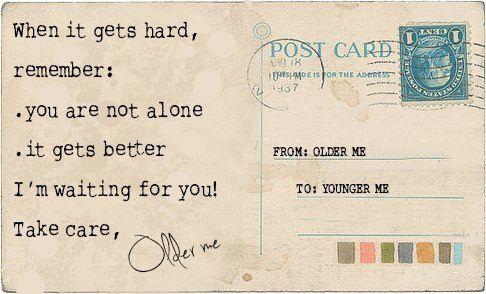 When it gets hard,
remember:
.you are not alone
.it gets better
I'm waiting for you!
Take care,
Older me
POST CARD
THIS SIDE IS FOR THE ADDRESS
18
1937
1
1
FROM: OLDER ME
TO: YOUNGER ME